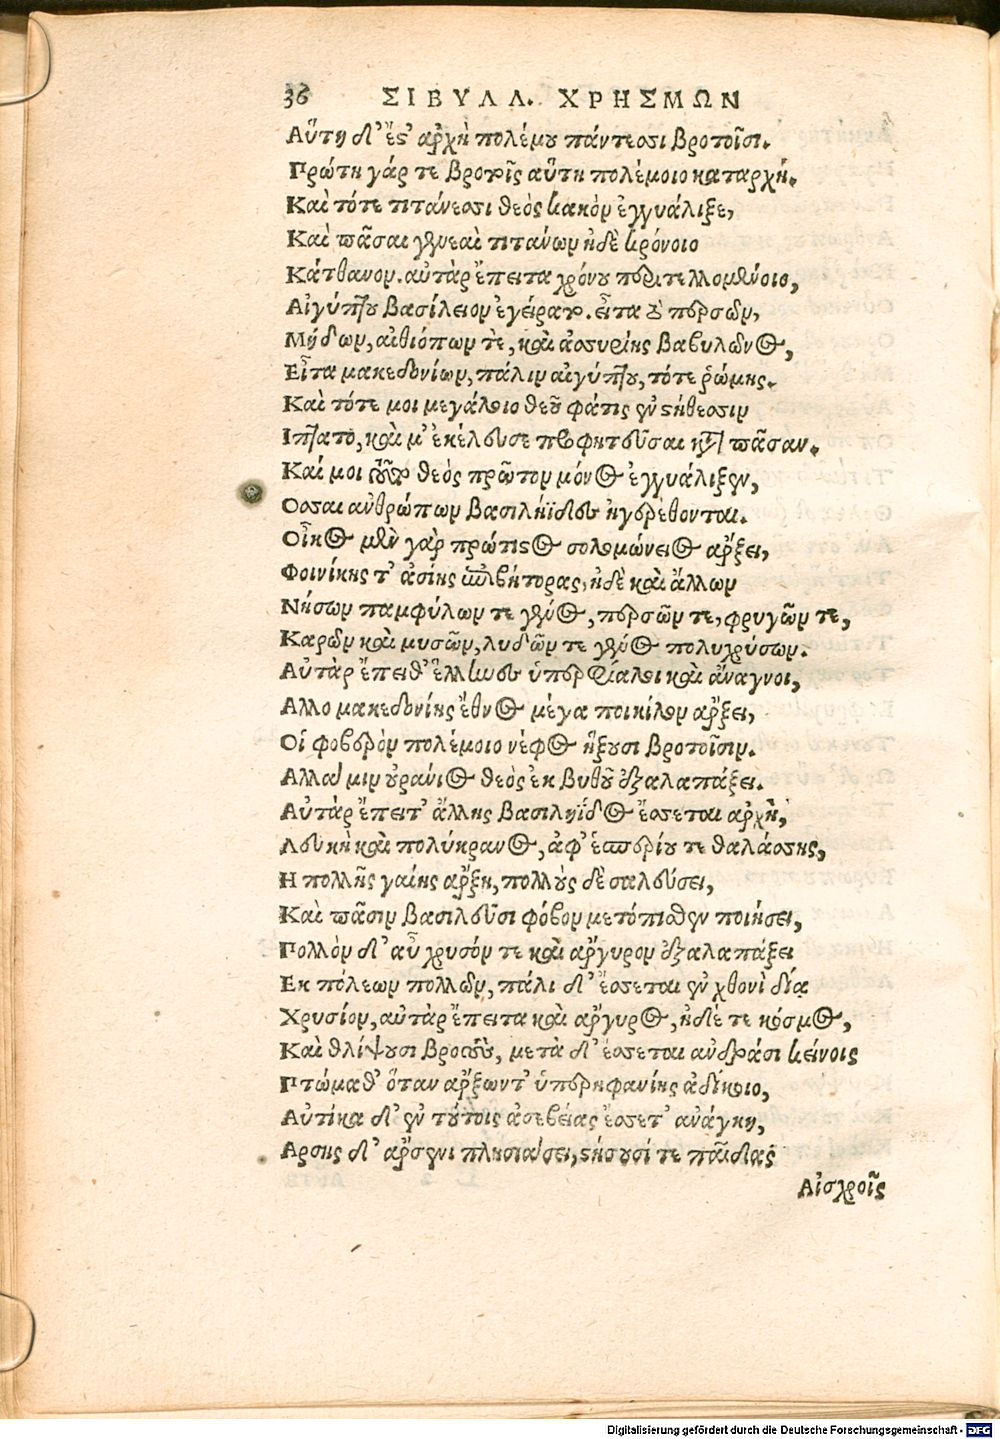 36 ΣΙΒΥΛΛ. ΧΡΗΣΜΩΝ
Αὕτη δ' ἔστ' ἀρχὴ πολέμου πάντεσσι βροτοῖσι.
Πρώτη γάρ τε βροτοῖς αὕτη πολέμοιο καταρχή.
Καὶ τότε τιτάνεσσι θεὸς κακὸν ἐγγυάλιξε,
Καὶ πᾶσαι γενεαὶ τιτάνων ἠδὲ κρόνοιο
Κάτθανον. αὐτὰρ ἔπειτα χρόνου περιτελλομένοιο,
Αἰγύπτου βασίλειον ἐγείρατο. εἶτα τὸ περσῶν,
Μήδων, αἰθιόπων τὲ, καὶ ἀσσυρίης βαβυλῶνος,
Εἶτα μακεδονίων, πάλιν αἰγύπτου, τότε ῥώμης.
Καὶ τότε μοι μεγάλοιο θεοῦ φάτις ἐν στήθεσσιν
Ιπτατο, καὶ μ' ἐκέλευσε προφητεῦσαι κατὰ πᾶσαν.
Καί μοι τοῦτο θεὸς πρῶτον μόνος ἐγγυάλιξεν,
Οσσαι ἀνθρώπων βασιληΐδες ἠγερέθονται.
Οἶκος μὲν γὰρ πρώτιστος σολομώνειος ἄρξει,
Φοινίκης τ' ἀσίης ἐπιβήτορας, ἠδὲ καὶ ἄλλων
Νήσων παμφύλων τε γένος, περσῶν τε, φρυγῶν τε,
Καρῶν καὶ μυσῶν, λυδῶν τε γένος πολυχρύσων.
Αὐτὰρ ἔπειθ' ἕλληνες ὑπερφίαλοι καὶ ἄναγνοι,
Αλλο μακεδονίης ἔθνος μέγα ποικίλον ἄρξει,
Οἱ φοβερὸν πολέμοιο νέφος ἥξουσι βροτοῖσιν.
Αλλά μιν οὐράνιος θεὸς ἐκ βυθοῦ ἐξαλαπάξει.
Αὐτὰρ ἔπειτ' ἄλλης βασιληΐδος ἔσσεται ἀρχὴ,
Λευκὴ καὶ πολύκρανος, ἀφ' ἑσπερίου τε θαλάσσης,
Η πολλῆς γαίης ἄρξῃ, πολλοὺς δὲ σαλεύσει,
Καὶ πᾶσιν βασιλεῦσι φόβον μετόπισθεν ποιήσει,
Πολλὸν δ' αὖ χρυσόν τε καὶ ἄργυρον ἐξαλαπάξει
Εκ πόλεων πολλῶν, πάλι δ' ἔσσεται ἐν χθονὶ δίᾳ
Χρυσίον, αὐτὰρ ἔπειτα καὶ ἄργυρος, ἠδέ τε κόσμος,
Καὶ θλίψουσι βροτοὺς, μετὰ δ' ἔσσεται ἀνδράσι κείνοις
Πτώμαθ' ὅταν ἄρξωντ' ὑπερηφανίης ἀδίκοιο,
Αὐτίκα δ' ἐν τούτοις ἀσεβείας ἔσσετ' ἀνάγκη,
Αρσης δ' ἄρσενι πλησιάσει, στήσουσί τε παῖδας
Αἰσχροῖς
Digitalisierung gefördert durch die Deutsche Forschungsgemeinschaft - DFG